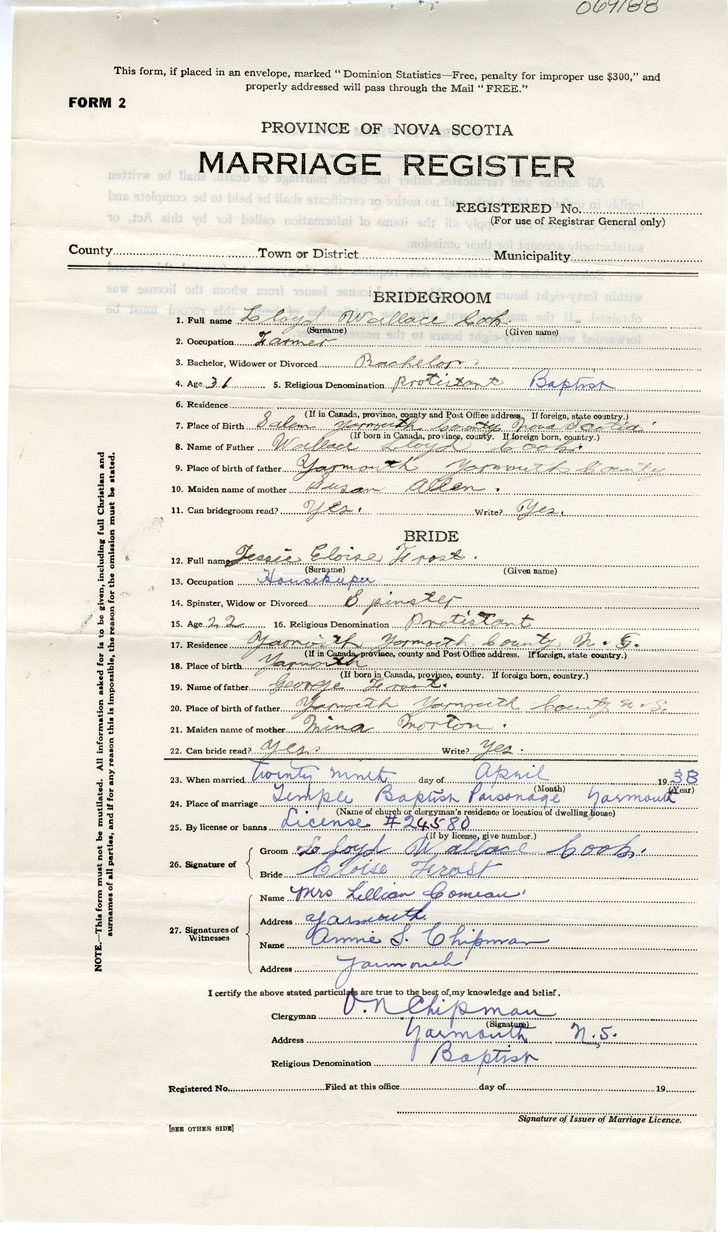 069788
This form, if placed in an envelope, marked " Dominion Statistics—Free, penalty for improper use $300," and
properly addressed will pass through the Mail " FREE."
FORM 2
PROVINCE OF NOVA SCOTIA
MARRIAGE REGISTER
REGISTERED No.
(For use of Registrar General only)
County Town or District Municipality
BRIDEGROOM
1. Full name Lloyd Wallace Cook
(Surname) (Given name)
2. Occupation Farmer
3. Bachelor, Widower or Divorced Bachelor
4. Age 31 5. Religious Denomination Protistant Baptist
6. Residence
(If in Canada, province, county and Post Office address. If foreign, state country.)
7. Place of Birth Salem Yarmouth County Nova Scotia
(If born in Canada, province, county. If foreign born, country.)
8. Name of Father Wallace Lloyd Cook
9. Place of birth of father Yarmouth Yarmouth County
10. Maiden name of mother Susan Allen.
11. Can bridegroom read? Yes. Write? Yes.
BRIDE
12. Full name Jessie Eloise Frost.
(Surname) (Given name)
13. Occupation Housekeeper
14. Spinster, Widow or Divorced Spinster
15. Age 22 16. Religious Denomination Protistant
17. Residence Yarmouth Yarmouth County N. S.
(If in Canada, province, county and Post Office address. If foreign, state country.)
18. Place of birth Yarmouth
(If born in Canada, province, county. If foreign born, country.)
19. Name of father George Frost.
20. Place of birth of father Yarmouth Yarmouth County N.S.
21. Maiden name of mother Mina Morton.
22. Can bride read? Yes. Write? Yes.
23. When married twenty ninth day of April 1938
(Month) (Year)
24. Place of marriage Temple Baptist Parsonage Yarmouth
(Name of church or clergyman's residence or location of dwelling house)
25. By license or banns License #24580
(If by license, give number.)
26. Signature of
Groom Lloyd Wallace Cook.
Bride Eloise Frost
27. Signatures of Witnesses
Name Mrs Lillian Comeau
Address Yarmouth
Name Annie S. Chipman
Address Yarmouth
I certify the above stated particulars are true to the best of my knowledge and belief.
Clergyman O.N. Chipman
(Signature)
Address Yarmouth N.S.
Religious Denomination Baptist
Registered No. Filed at this office day of 19
Signature of Issuer of Marriage Licence.
[SEE OTHER SIDE]
NOTE.—This form must not be mutilated. All information asked for is to be given, including full Christian and
surnames of all parties, and if for any reason this is impossible, the reason for the omission must be stated.